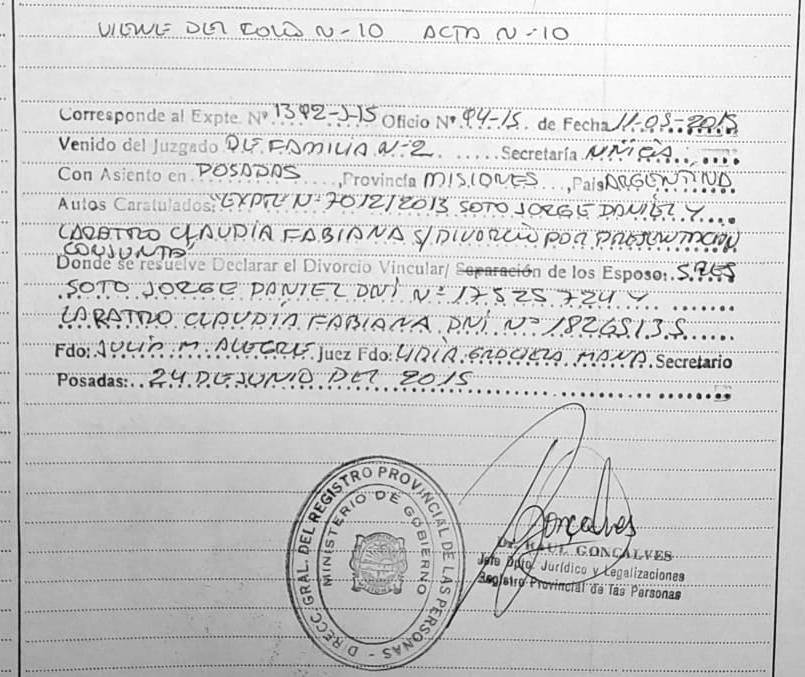 VIENE DEL FOLIO N-10 ACTA N-10
Corresponde al Expte. Nº 1392-J-15 Oficio Nº 94-15. de Fecha 11-03-2015
Venido del Juzgado DE FAMILIA N-2. Secretaría UNICA
Con Asiento en POSADAS, Provincia MISIONES, País ARGENTINA
Autos Caratulados: "EXPTE Nº 7012/2013 SOTO JORGE DANIEL Y
LABATTO CLAUDIA FABIANA S/DIVORCIO POR PRESENTACION
CONJUNTA"
Donde se resuelve Declarar el Divorcio Vincular/ Separación de los Esposo: SRES
SOTO JORGE DANIEL DNI Nº 17.525.724 Y
CLAUDIA FABIANA DNI Nº 18265135
Fdo: M. ALEGRE Juez Fdo: Secretario
Posadas: 24 DE JUNIO DEL 2015
DIRECC. GRAL. DEL REGISTRO PROVINCIAL DE LAS PERSONAS
MINISTERIO DE GOBIERNO
Gonçalves
Dr. RAUL GONÇALVES
Jefe Dpto. Jurídico y Legalizaciones
Registro Provincial de las Personas